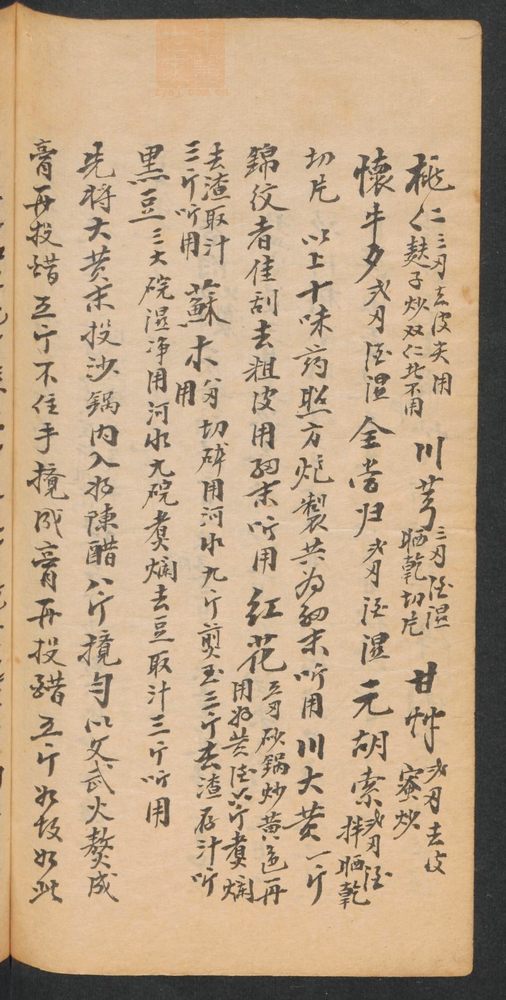 桃仁 三刃去皮尖用麸子炒双仁者不用 川芎 三刃酒湿晒乾切片 甘艸 弍刃去皮蜜炒
懷牛夕 弍刃酒湿 全当归 弍刃酒湿 元胡索 弍刃酒拌晒乾
切片 以上十味药照方炮製共为细末听用 川大黄一斤
錦纹者佳刮去粗皮用细末听用 红花 五刃砂锅炒黄色再用好黄酒煮烂
去渣取汁三斤听用 蘇木 切碎用河水九斤熬至三斤去渣存汁听用
黑豆 三大碗湿净用河水九碗煮烂去豆取汁三斤听用
先将大黄末投沙锅内入好陳醋八斤搅匀以文武火熬成
膏再投醋五斤不住手搅成膏再投醋五斤如故如此